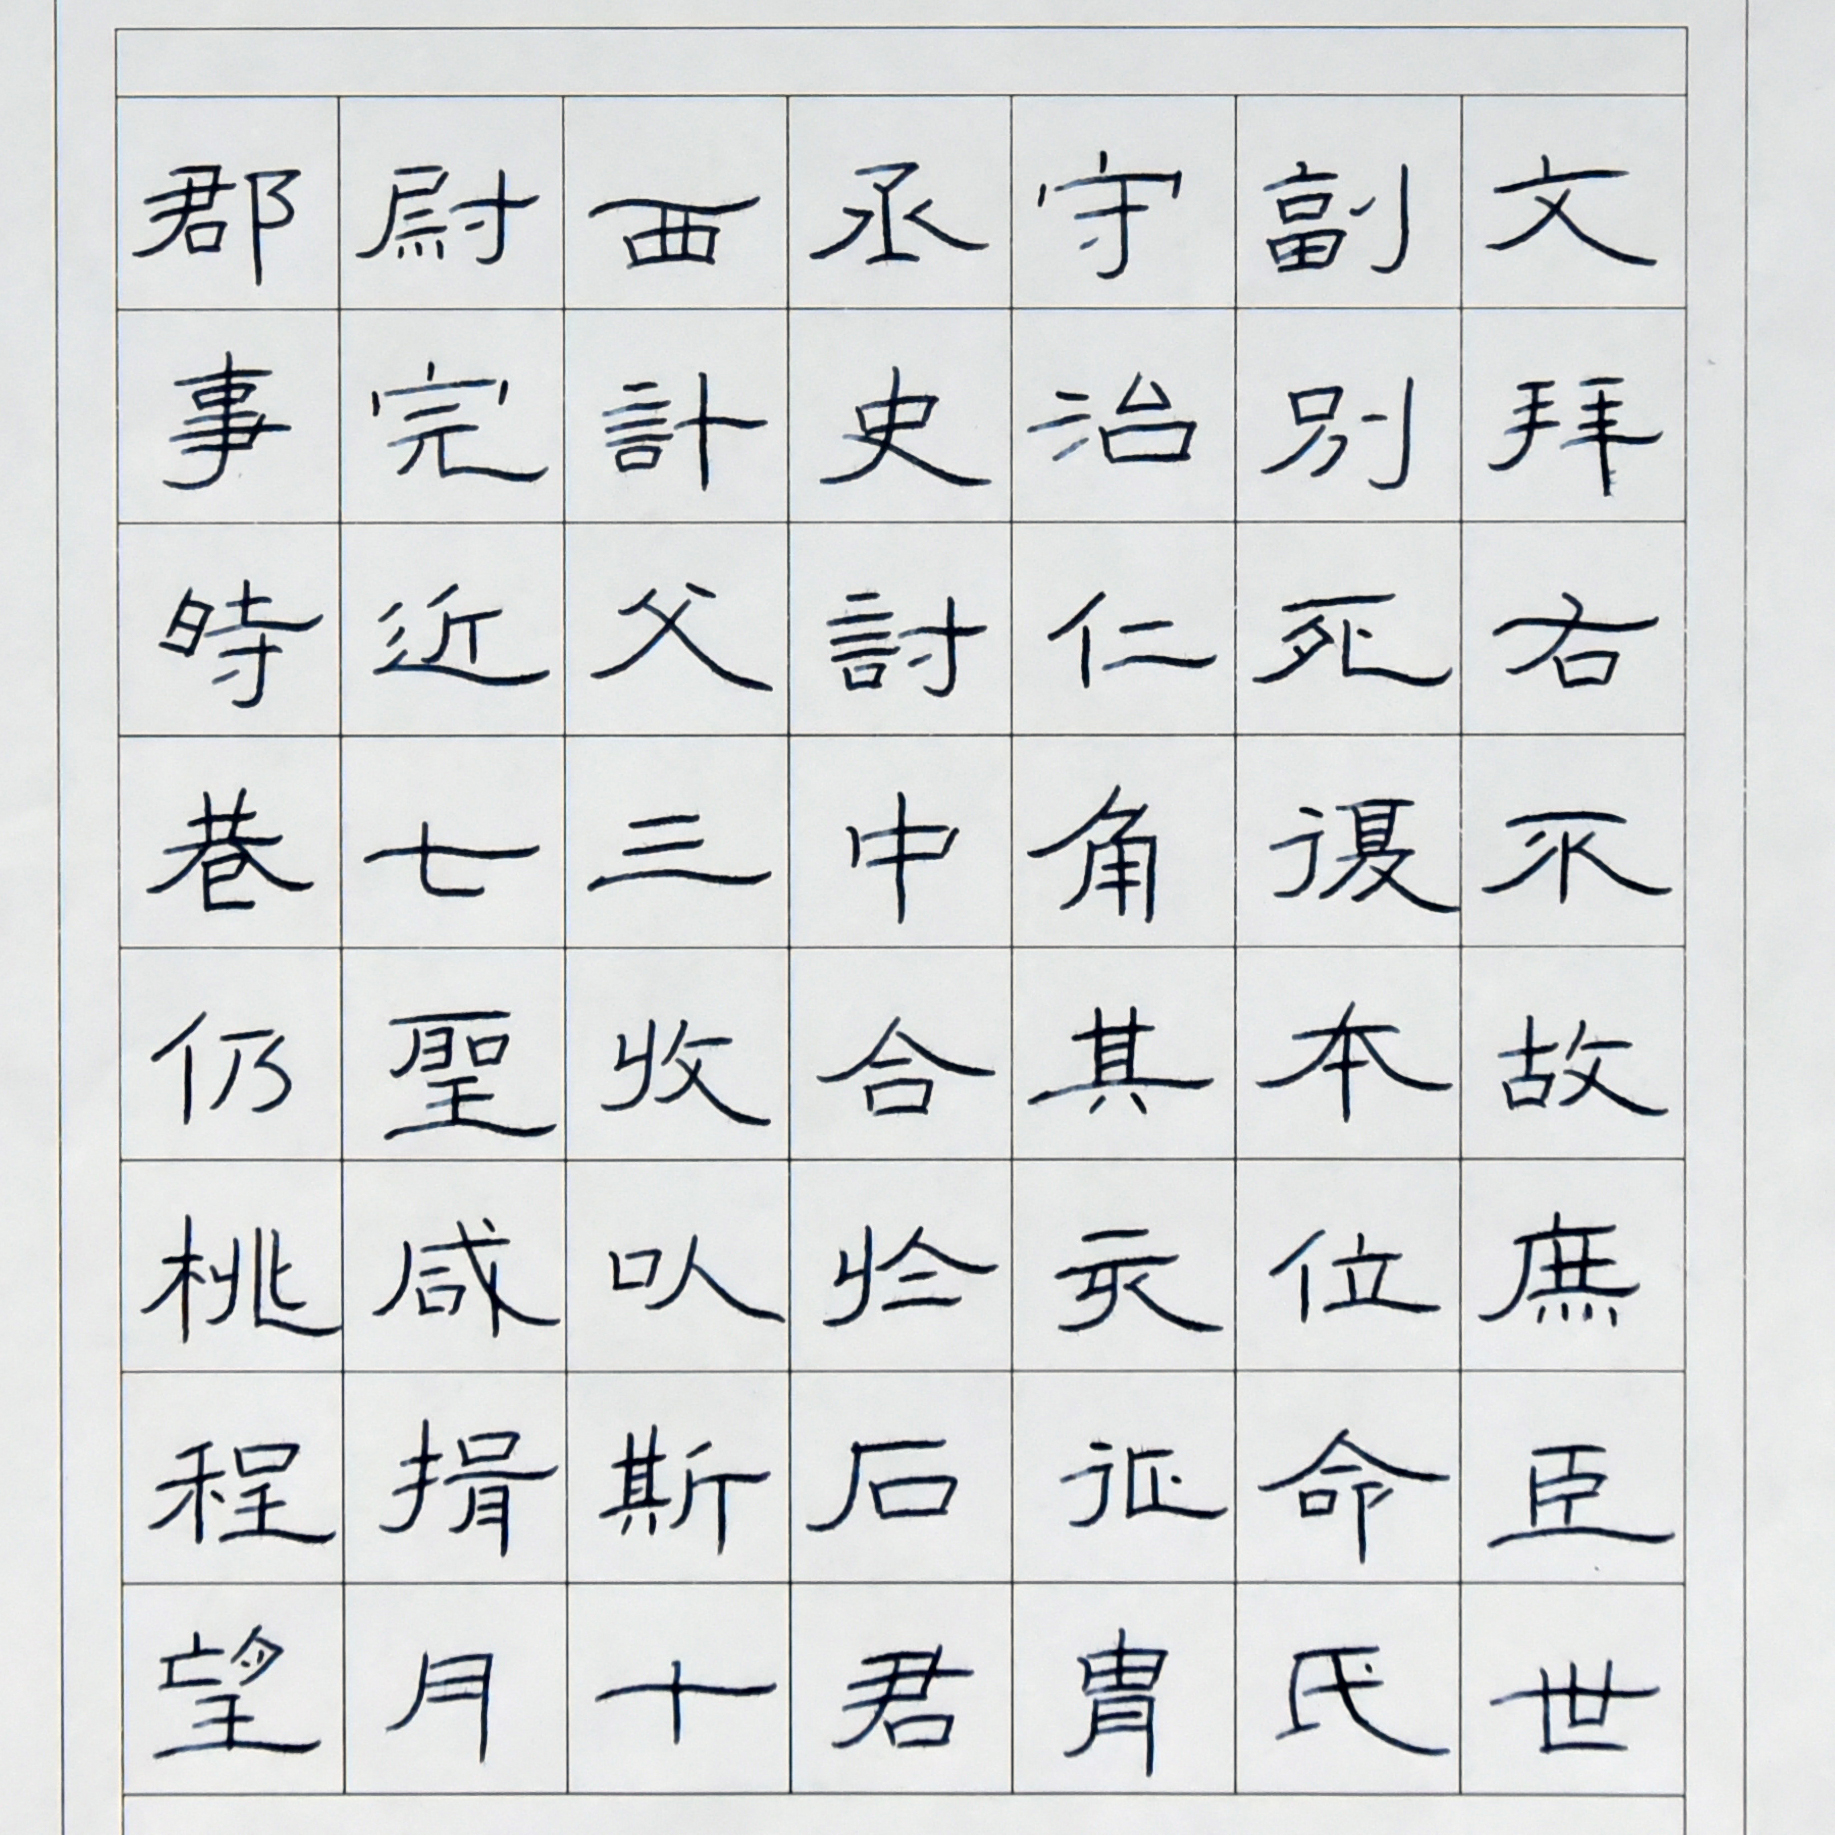 文拜右不故庶臣世
副別死復本位命氏
守治仁角其亥征胄
丞史討中合於石君
西計父三收以斯十
尉完近七聖咸捐月
郡事時巷仍桃程望